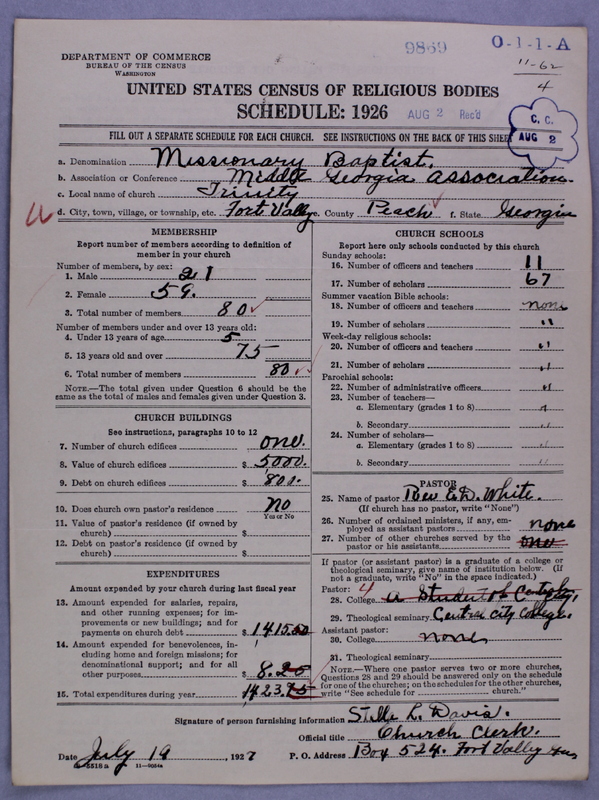 DEPARTMENT OF COMMERCE
BUREAU OF THE CENSUS
WASHINGTON
9869
O-1-1-A
11-62
4
UNITED STATES CENSUS OF RELIGIOUS BODIES
SCHEDULE: 1926
AUG 2 Rec'd
C. C.
AUG 2
FILL OUT A SEPARATE SCHEDULE FOR EACH CHURCH. SEE INSTRUCTIONS ON THE BACK OF THIS SHEET
a. Denomination Missionary Baptist.
b. Association or Conference Middle Georgia Association.
c. Local name of church Trinity
d. City, town, village, or township, etc. Fort Valley e. County Peach f. State Georgia
MEMBERSHIP
Report number of members according to definition of
member in your church
Number of members, by sex:
1. Male 21
2. Female 59.
3. Total number of members 80
Number of members under and over 13 years old:
4. Under 13 years of age 5
5. 13 years old and over 75
6. Total number of members 80
NOTE.—The total given under Question 6 should be the
same as the total of males and females given under Question 3.
CHURCH BUILDINGS
See instructions, paragraphs 10 to 12
7. Number of church edifices one.
8. Value of church edifices $ 5000.
9. Debt on church edifices $ 800.
10. Does church own pastor's residence? No
Yes or No
11. Value of pastor's residence (if owned by
church) $
12. Debt on pastor's residence (if owned by
church) $
EXPENDITURES
Amount expended by your church during last fiscal year
13. Amount expended for salaries, repairs,
and other running expenses; for im-
provements or new buildings; and for
payments on church debt $ 1415.00
14. Amount expended for benevolences, in-
cluding home and foreign missions; for
denominational support; and for all
other purposes $ 8.25
15. Total expenditures during year 1423.25
CHURCH SCHOOLS
Report here only schools conducted by this church
Sunday schools:
16. Number of officers and teachers 11
17. Number of scholars 67
Summer vacation Bible schools:
18. Number of officers and teachers none
19. Number of scholars "
Week-day religious schools:
20. Number of officers and teachers "
21. Number of scholars "
Parochial schools:
22. Number of administrative officers "
23. Number of teachers—
a. Elementary (grades 1 to 8) "
b. Secondary "
24. Number of scholars—
a. Elementary (grades 1 to 8) "
b. Secondary "
PASTOR
25. Name of pastor Rev E.D. White.
(If church has no pastor, write "None")
26. Number of ordained ministers, if any, em-
ployed as assistant pastors none
27. Number of other churches served by the
pastor or his assistants one
If pastor (or assistant pastor) is a graduate of a college or
theological seminary, give name of institution below. (If
not a graduate, write "No" in the space indicated.)
Pastor: 4
28. College a Student of Cent City,
29. Theological seminary Central City College.
Assistant pastor:
30. College none
31. Theological seminary
NOTE.—Where one pastor serves two or more churches,
Questions 28 and 29 should be answered only on the schedule
for one of the churches; on the schedules for the other churches,
write "See schedule for church."
Signature of person furnishing information L. Davis.
Official title Church Clerk.
Date July 19, 1927 P. O. Address Box 524. Fort Valley
8518 a 11-9054a